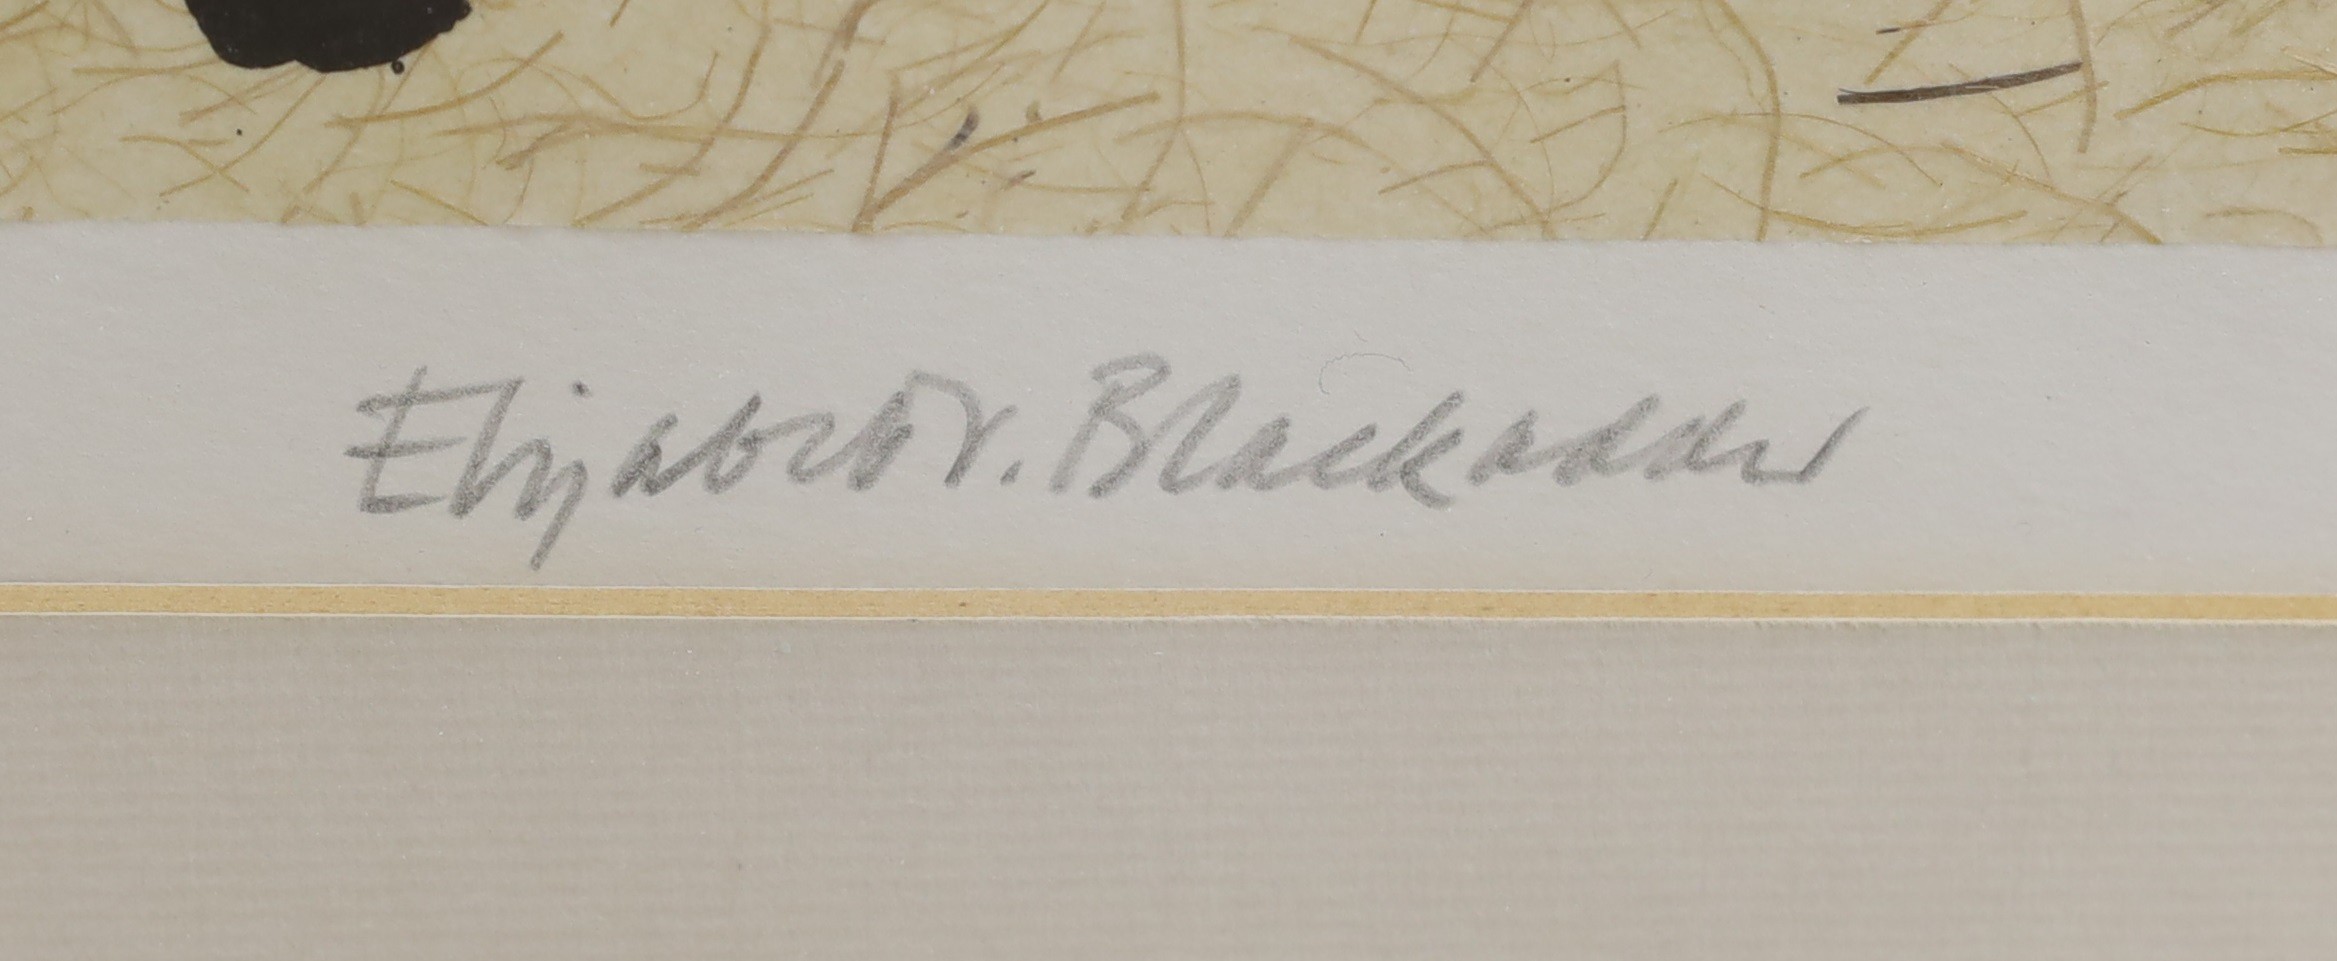 Elizabeth V. Blackadder